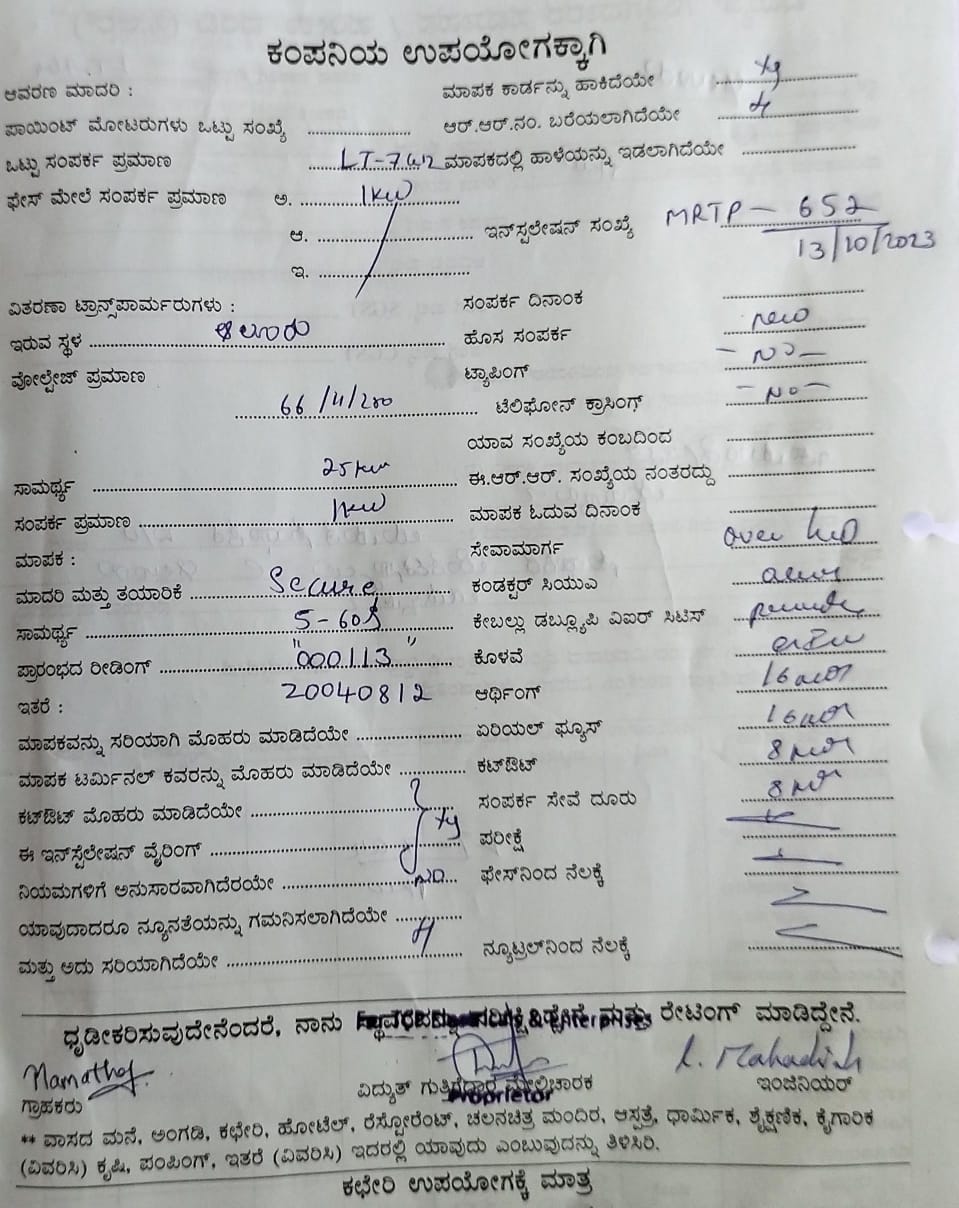 ಕಂಪನಿಯ ಉಪಯೋಗಕ್ಕಾಗಿ
ಆವರಣ ಮಾದರಿ : ಮಾಪಕ ಕಾರ್ಡನ್ನು ಹಾಕಿದೆಯೇ
ಪಾಯಿಂಟ್ ಮೋಟರುಗಳು ಒಟ್ಟು ಸಂಖ್ಯೆ ಆರ್.ಆರ್.ನಂ. ಬರೆಯಲಾಗಿದೆಯೇ
ಒಟ್ಟು ಸಂಪರ್ಕ ಪ್ರಮಾಣ ಮಾಪಕದಲ್ಲಿ ಹಾಳೆಯನ್ನು ಇಡಲಾಗಿದೆಯೇ
ಫೇಸ್ ಮೇಲೆ ಸಂಪರ್ಕ ಪ್ರಮಾಣ ಅ. 1KW
ಆ. ಇನ್‌ಸ್ಪಲೇಷನ್ ಸಂಖ್ಯೆ MRTP - 652
13/10/2023
ಇ.
ವಿತರಣಾ ಟ್ರಾನ್ಸ್‌ಪಾರ್ಮರುಗಳು : ಸಂಪರ್ಕ ದಿನಾಂಕ
ಇರುವ ಸ್ಥಳ ಆಲೂರು ಹೊಸ ಸಂಪರ್ಕ new
ವೋಲ್ಟೇಜ್ ಪ್ರಮಾಣ ಟ್ಯಾಪಿಂಗ್ - NO -
66/11/200 ಟೆಲಿಫೋನ್ ಕ್ರಾಸಿಂಗ್ - NO -
ಯಾವ ಸಂಖ್ಯೆಯ ಕಂಬದಿಂದ
ಸಾಮರ್ಥ್ಯ 25 KW ಈ.ಆರ್.ಆರ್. ಸಂಖ್ಯೆಯ ನಂತರದ್ದು
ಸಂಪರ್ಕ ಪ್ರಮಾಣ 1KW ಮಾಪಕ ಓದುವ ದಿನಾಂಕ
ಮಾಪಕ : ಸೇವಾಮಾರ್ಗ over
ಮಾದರಿ ಮತ್ತು ತಯಾರಿಕೆ Secure ಕಂಡಕ್ಟರ್ ಸಿಯುಎ
ಸಾಮರ್ಥ್ಯ 5-60 ಕೇಬಲ್ಲು ಡಬ್ಲ್ಯೂಪಿ ವಿಐರ್ ಸಿಟಿಸ್
ಪ್ರಾರಂಭದ ರೀಡಿಂಗ್ "000113" ಕೊಳವೆ
ಇತರೆ : 20040812 ಆರ್ಥಿಂಗ್
ಮಾಪಕವನ್ನು ಸರಿಯಾಗಿ ಮೊಹರು ಮಾಡಿದೆಯೇ ಏರಿಯಲ್ ಫ್ಯೂಸ್
ಮಾಪಕ ಟರ್ಮಿನಲ್ ಕವರನ್ನು ಮೊಹರು ಮಾಡಿದೆಯೇ ಕಟ್‌ಔಟ್
ಕಟ್‌ಔಟ್ ಮೊಹರು ಮಾಡಿದೆಯೇ ಸಂಪರ್ಕ ಸೇವೆ ದೂರು
ಈ ಇನ್‌ಸ್ಪೆಲೇಷನ್ ವೈರಿಂಗ್ ಪರೀಕ್ಷೆ
ನಿಯಮಗಳಿಗೆ ಅನುಸಾರವಾಗಿದೆರಯೇ NO ಫೇಸ್‌ನಿಂದ ನೆಲಕ್ಕೆ
ಯಾವುದಾದರೂ ನ್ಯೂನತೆಯನ್ನು ಗಮನಿಸಲಾಗಿದೆಯೇ
ಮತ್ತು ಅದು ಸರಿಯಾಗಿದೆಯೇ ನ್ಯೂಟ್ರಲ್‌ನಿಂದ ನೆಲಕ್ಕೆ
ಧೃಡೀಕರಿಸುವುದೇನೆಂದರೆ, ನಾನು ಮತ್ತು ರೇಟಿಂಗ್ ಮಾಡಿದ್ದೇನೆ.
Namatha
ಗ್ರಾಹಕರು ವಿದ್ಯುತ್ ಗುತ್ತಿಗೆದಾರ ಮೇಲ್ವಿಚಾರಕ ಇಂಜಿನಿಯರ್
Proprietor
** ವಾಸದ ಮನೆ, ಅಂಗಡಿ, ಕಛೇರಿ, ಹೋಟೆಲ್, ರೆಸ್ಟೋರೆಂಟ್, ಚಲನಚಿತ್ರ ಮಂದಿರ, ಆಸ್ಪತ್ರೆ, ಧಾರ್ಮಿಕ, ಶೈಕ್ಷಣಿಕ, ಕೈಗಾರಿಕ
(ವಿವರಿಸಿ) ಕೃಷಿ, ಪಂಪಿಂಗ್, ಇತರೆ (ವಿವರಿಸಿ) ಇದರಲ್ಲಿ ಯಾವುದು ಎಂಬುವುದನ್ನು ತಿಳಿಸಿರಿ.
ಕಛೇರಿ ಉಪಯೋಗಕ್ಕೆ ಮಾತ್ರ